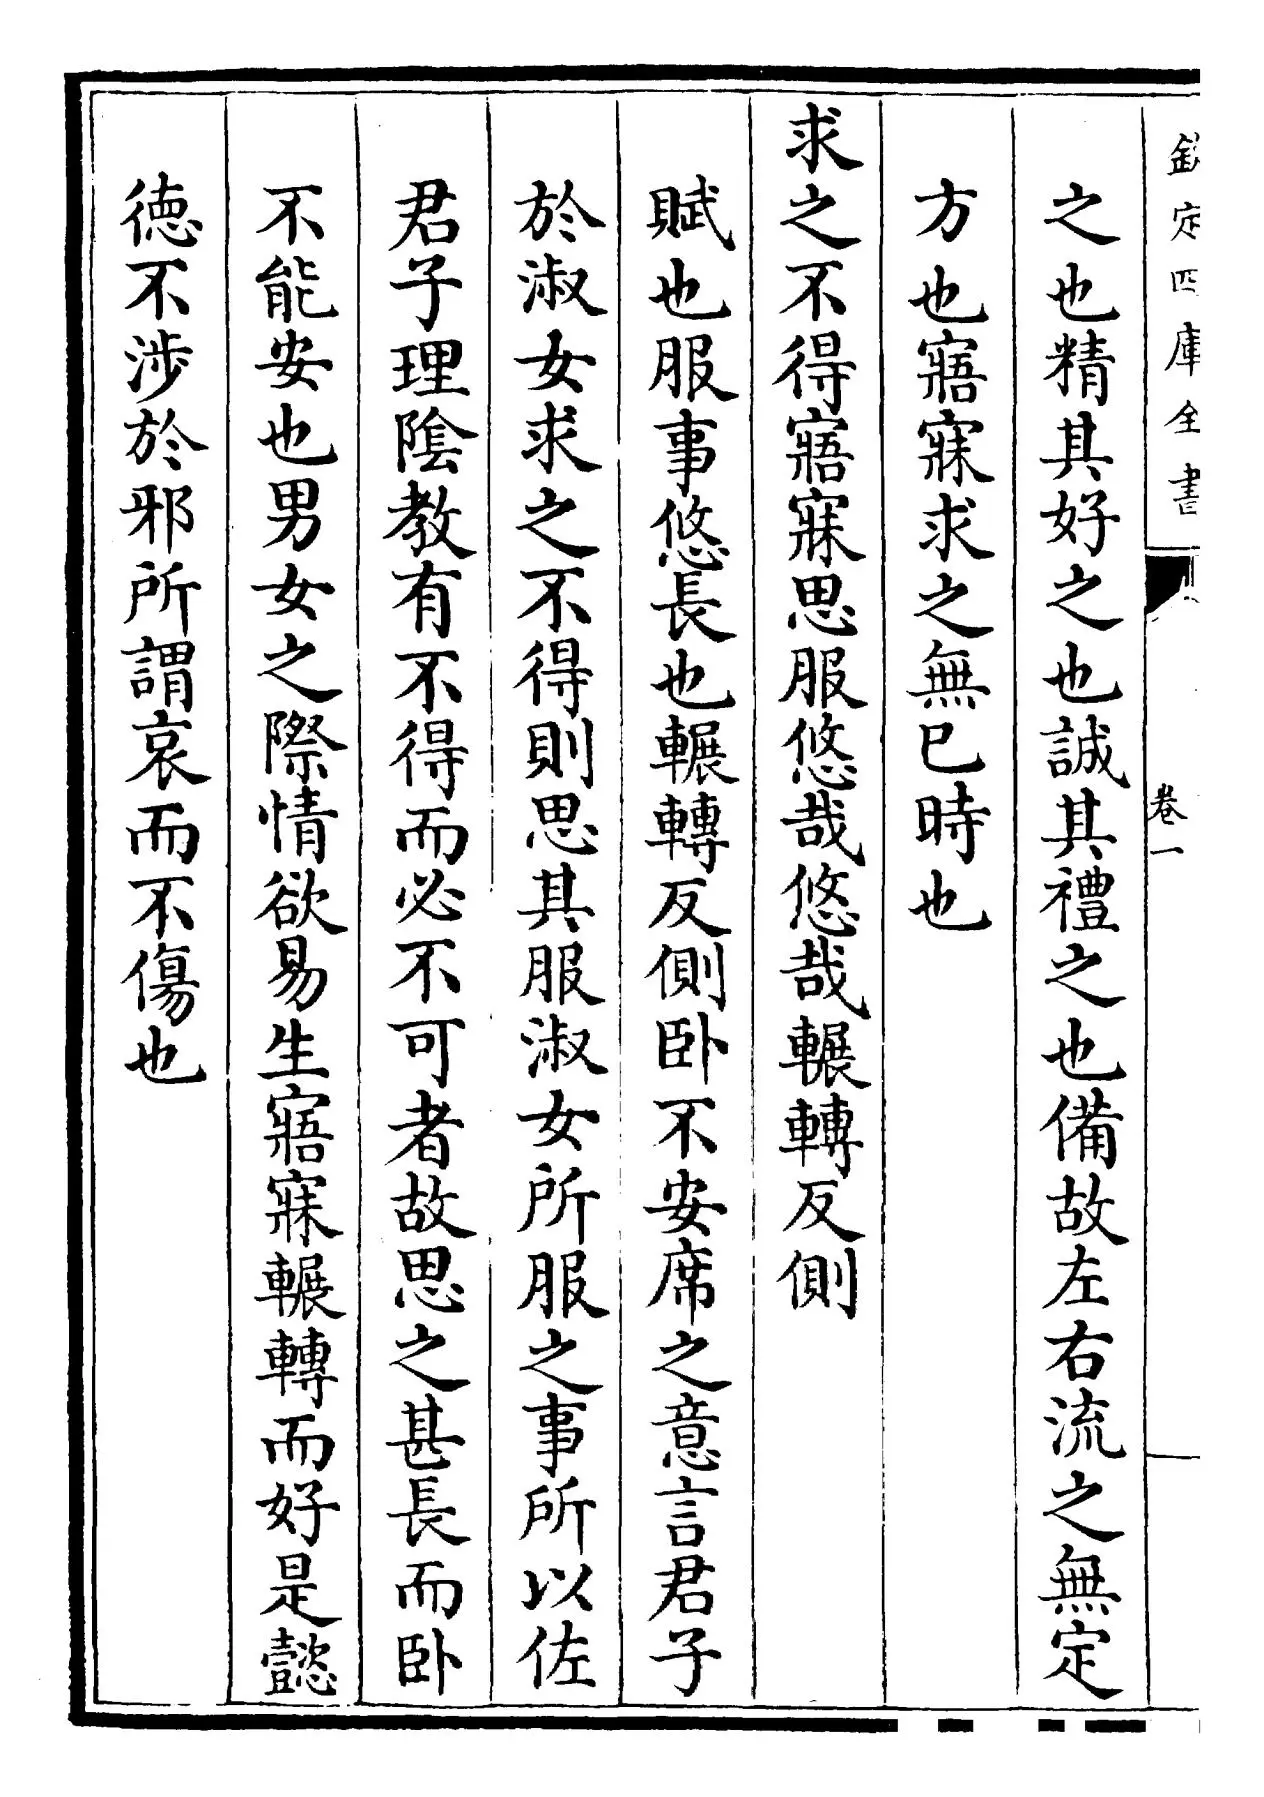 欽定四庫全書
卷一
之也精其好之也誠其禮之也備故左右流之無定
方也寤寐求之無已時也
求之不得寤寐思服悠哉悠哉輾轉反側
賦也服事悠長也輾轉反側卧不安席之意言君子
於淑女求之不得則思其服淑女所服之事所以佐
君子理陰教有不得而必不可者故思之甚長而卧
不能安也男女之際情欲易生寤寐輾轉而好是懿
德不涉於邪所謂哀而不傷也